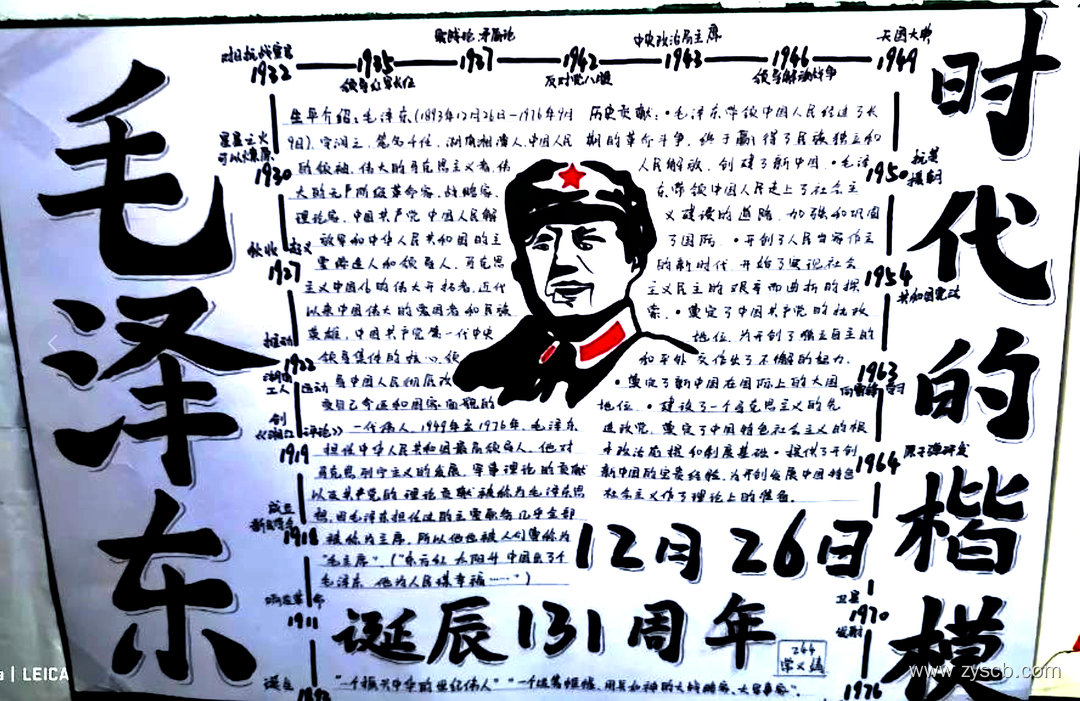 毛泽东
时代的楷模
对日抗战宣言
1932
1935
领导红军长征
实践论 矛盾论
1937
1942
反对党八股
中央政治局主席
1943
1946
领导解放战争
开国大典
1949
星星之火
可以燎原
1930
秋收起义
1927
推动
1922
湖南
工人运动
创
《湘江评论》
1919
成立
1918
响应革命
1911
诞生
抗美
援朝
1950
1954
共和国宪法
1963
向雷锋学习
1964
原子弹研发
卫星
1970
发射
1976
生平介绍:毛泽东(1893年12月26日-1976年9月
9日),字润之,笔名子任,湖南湘潭人,中国人民
的领袖,伟大的马克思主义者,伟
大的无产阶级革命家、战略家、
理论家,中国共产党、中国人民解
放军和中华人民共和国的主
要缔造人和领导人,马克思
主义中国化的伟大开拓者,近代
以来中国伟大的爱国者和民族
英雄,中国共产党第一代中央
领导集体的核心,领
导中国人民彻底改
变自己命运和国家面貌的
一代伟人。1949年至1976年,毛泽东
担任中华人民共和国最高领导人。他对
马克思列宁主义的发展、军事理论的贡献
以及共产党的理论贡献被称为毛泽东思
想。因毛泽东担任过的主要职务几乎全部
被称为主席,所以他也被人们尊称为
“毛主席”。(“东方红,太阳升,中国出了个
毛泽东,他为人民谋幸福……”)
历史贡献:·毛泽东带领中国人民经过了长
期的革命斗争,终于赢得了民族独立和
人民解放,创建了新中国。·毛泽
东带领中国人民走上了社会主
义建设的道路,加强和巩固
了国防。·开创了人民当家作主
的新时代,开始了实现社会
主义民主的艰辛而曲折的探
索。·奠定了中国共产党的执政
地位,为开创了独立自主的
和平外交作出了不懈的努力。
·奠定了新中国在国际上的大国
地位。·建设了一个马克思主义的先
进政党,奠定了中国特色社会主义的根
本政治前提和制度基础。·提供了开创
新中国的宝贵经验,为开创发展中国特色
社会主义作了理论上的准备。
12月26日
诞辰131周年
264
“一个振兴中华的世纪伟人”“一个运筹帷幄、用兵如神的大战略家、大军事家”。
LEICA
www.zyscb.com